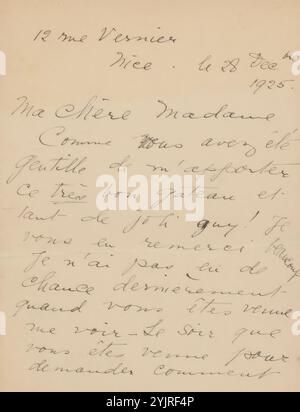 12 rue Vernier
Nice. le 28 Dec
1925.
Ma chère Madame
Comme vous avez été
gentille de m'apporter
ce très bon gateau et
tant de joli guy! Je
vous en remerci beaucoup
Je n'ai pas eu de
chance dernierement
quand vous êtes venue
me voir - Le soir que
vous êtes venue pour
demander comment
alamy
Image ID: 2YJRF4P
www.alamy.com